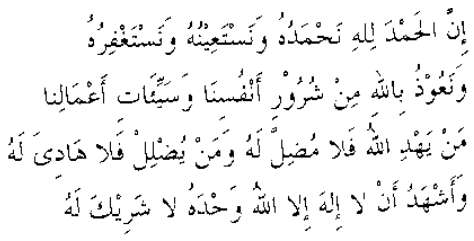 إِنَّ الحَمْدَ لِلهِ نَحْمَدُهُ وَنَسْتَعِيْنُهُ وَنَسْتَغْفِرُهُ
وَنَعُوْذُ بِاللهِ مِنْ شُرُوْرِ أَنْفُسِنَا وَسَيِّئَاتِ أَعْمَالِنا
مَنْ يَهْدِ اللهُ فَلا مُضِلَّ لَهُ وَمَنْ يُضْلِلْ فَلا هَادِىَ لَهُ
وَأَشْهَدُ أَنْ لا إِلهَ إِلا اللهُ وَحْدَهُ لا شَرِيْكَ لَهُ